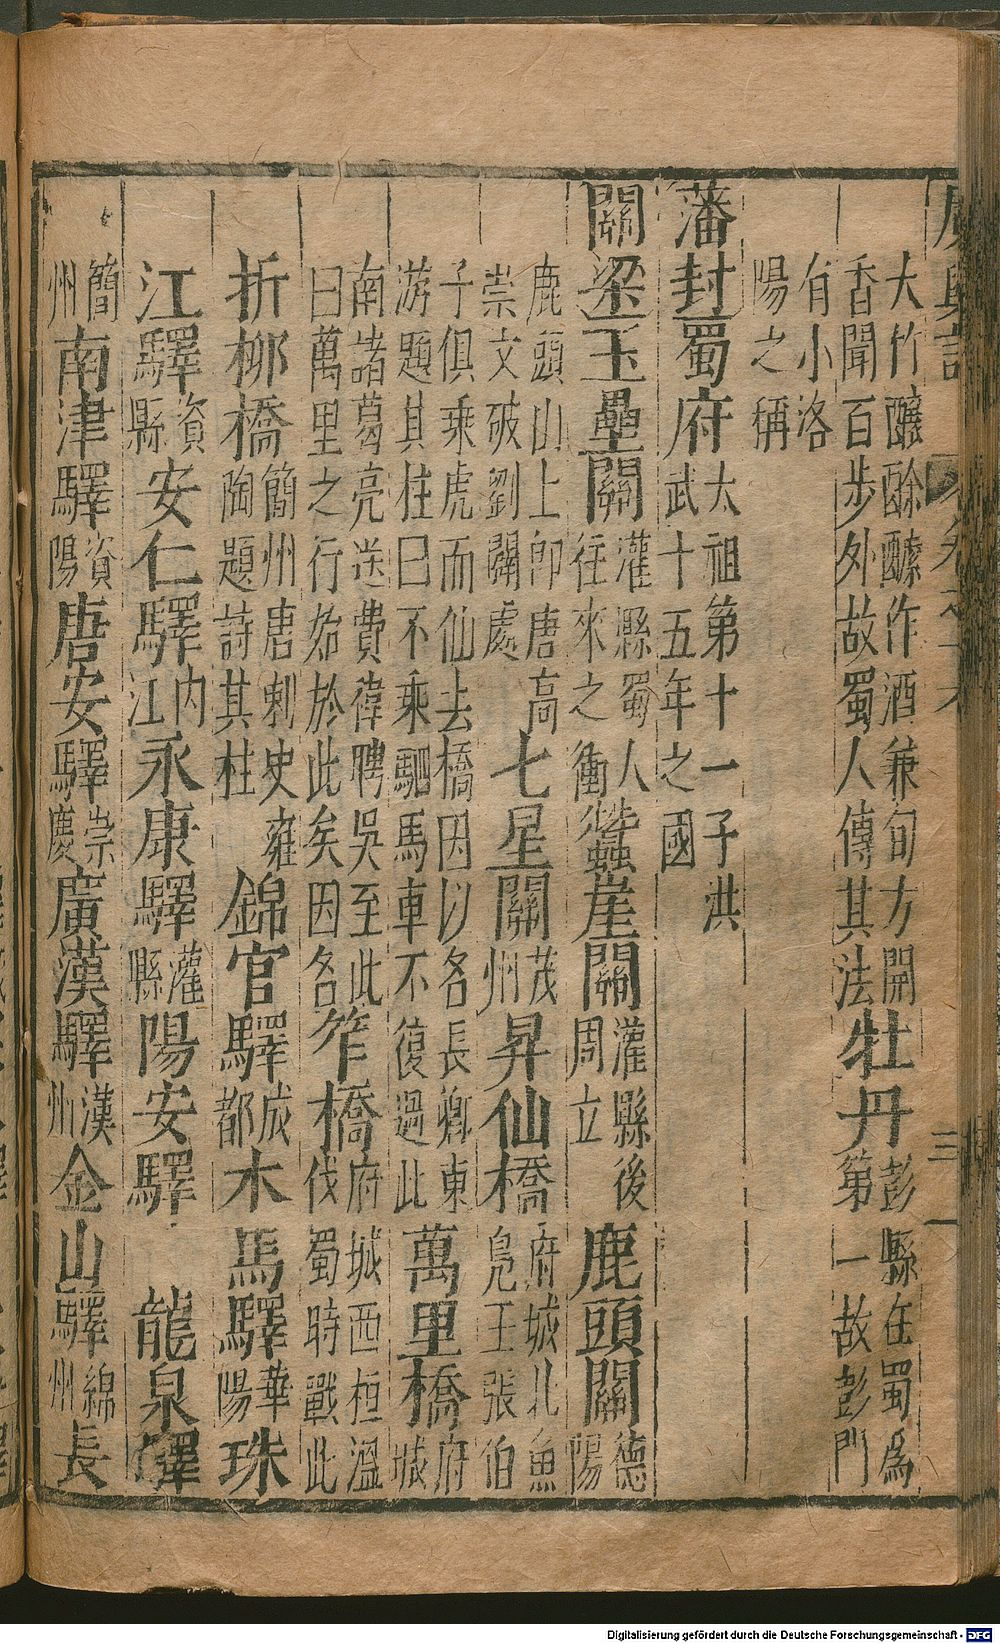 廣輿記 卷之十六 三一
大竹釀酴醾作酒兼旬方開
香聞百步外故蜀人傳其法牡丹彭縣在蜀為
第一故彭門
有小洛
陽之稱
藩封蜀府太祖第十一子洪
武十五年之國
關梁玉壘關灌縣蜀人
往來之衝蠶崖關灌縣後
周立鹿頭關德
陽
鹿頭山上即唐高
崇文破劉闢處七星關茂
州昇仙橋府城北魚
鳧王張伯
子俱乘虎而仙去橋因以名長卿東
游題其柱曰不乘駟馬車不復過此萬里橋府
城
南諸葛亮送費禕聘吳至此
曰萬里之行始於此矣因名笮橋府城西桓溫
伐蜀時戰此
折柳橋簡州唐刺史雍
陶題詩其柱錦官驛成
都木馬驛華
陽珠
江驛資
縣安仁驛內
江永康驛灌
縣陽安驛 龍泉驛
簡
州南津驛資
陽唐安驛崇
慶廣漢驛漢
州金山驛綿
州長
Digitalisierung gefördert durch die Deutsche Forschungsgemeinschaft - DFG